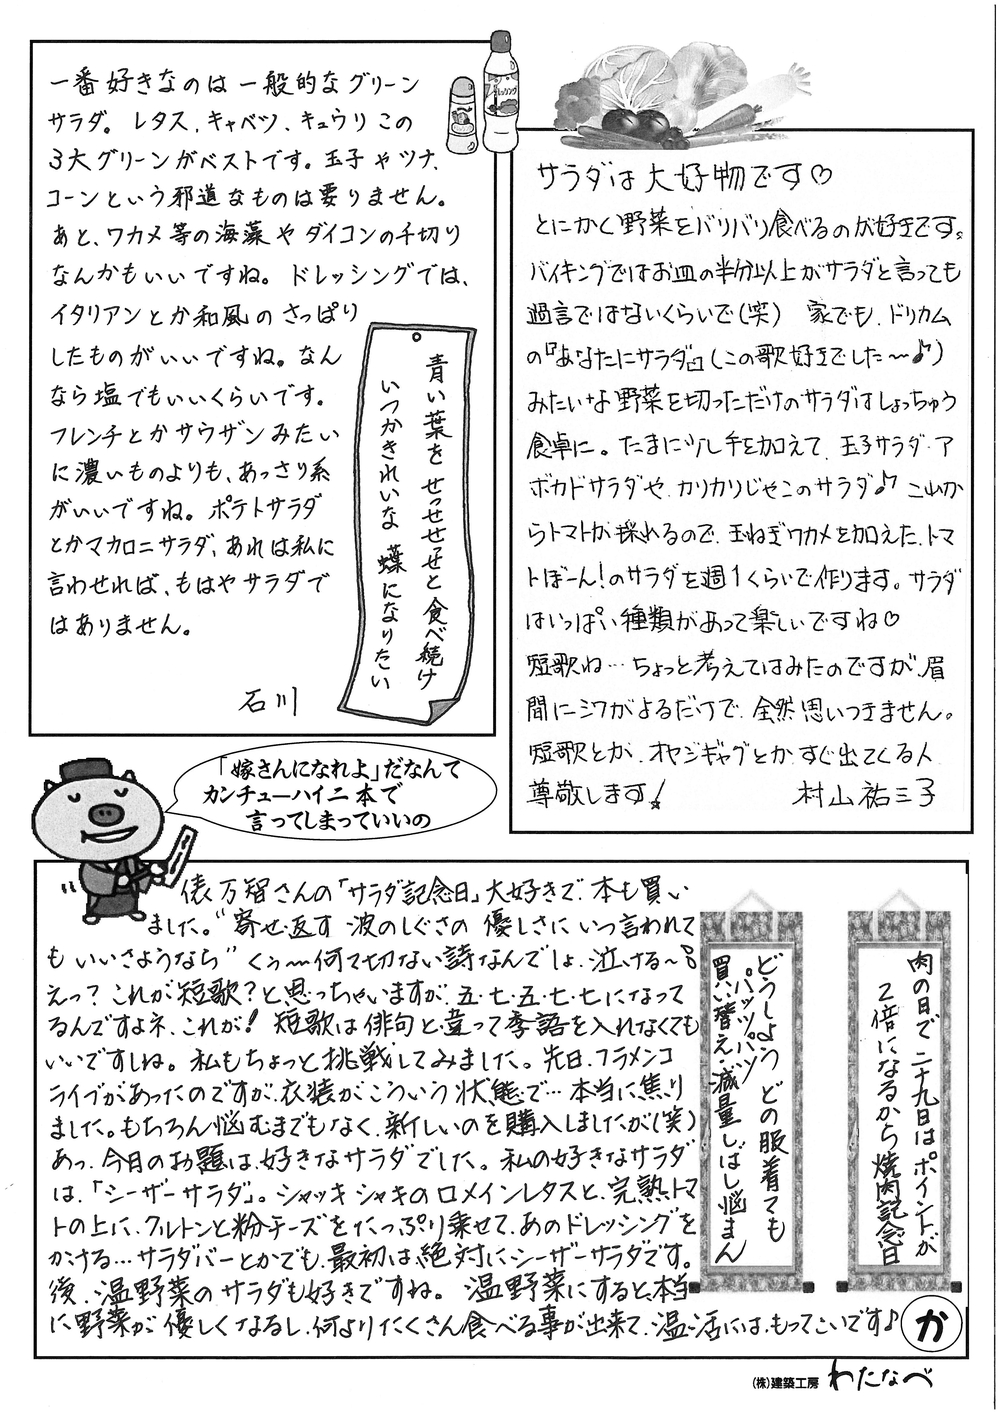 一番好きなのは一般的なグリーン
サラダ。レタス、キャベツ、キュウリこの
3大グリーンがベストです。玉子やツナ、
コーンという邪道なものは要りません。
あと、ワカメ等の海藻やダイコンの千切り
なんかもいいですね。ドレッシングでは、
イタリアンとか和風のさっぱり
したものがいいですね。なん
なら塩でもいいくらいです。
フレンチとかサウザンみたい
に濃いものよりも、あっさり系
がいいですね。ポテトサラダ
とかマカロニサラダ、あれは私に
言わせれば、もはやサラダで
はありません。
石川
青い葉をせっせせっせと食べ続け
いつかきれいな蝶になりたい
サラダは大好物です♡
とにかく野菜をバリバリ食べるのが好きです。
バイキングではお皿の半分以上がサラダと言っても
過言ではないくらいで(笑) 家でも、ドリカム
の『あなたにサラダ』(この歌好きでした〜♪)
みたいな野菜を切っただけのサラダはしょっちゅう
食卓に。たまに少し手を加えて、玉子サラダ・ア
ボカドサラダや、カリカリじゃこのサラダ♪ これか
らトマトが採れるので、玉ねぎワカメを加えた、トマ
トぼーん!のサラダを週1くらいで作ります。サラダ
はいっぱい種類があって楽しいですね♡
短歌ね…ちょっと考えてはみたのですが、眉
間にシワがよるだけで、全然思いつきません。
短歌とか、オヤジギャグとかすぐ出てくる人
尊敬します!
村山祐三子
「嫁さんになれよ」だなんて
カンチューハイ二本で
言ってしまっていいの
俵万智さんの「サラダ記念日」大好きで、本も買い
ました。“寄せ返す 波のしぐさの 優しさに いつ言われて
も いいさようなら” くぅ〜何て切ない詩なんでしょ、泣ける〜。
えっ?これが短歌?と思っちゃいますが、五・七・五・七・七になって
るんですよネ、これが! 短歌は俳句と違って季語を入れなくても
いいですしね。私もちょっと挑戦してみました。先日、フラメンコ
ライブがあったのですが、衣装がこういう状態で…本当に焦り
ました。もちろん悩むまでもなく、新しいのを購入しましたが(笑)
あっ、今月のお題は、好きなサラダでした。私の好きなサラダ
は、「シーザーサラダ」。シャッキシャキのロメインレタスと、完熟トマ
トの上に、クルトンと粉チーズをたっぷり乗せて、あのドレッシングを
かける…サラダバーとかでも、最初は絶対にシーザーサラダです。
後、温野菜のサラダも好きですね。温野菜にすると、本当
に野菜が優しくなるし、何よりたくさん食べる事が出来て、温活には、もってこいです♪
どうしよう どの服着ても
パッツパツ
買い替え・減量しばし悩まん
肉の日で 二十九日はポイントが
2倍になるから焼肉記念日
か
(株)建築工房 わたなべ